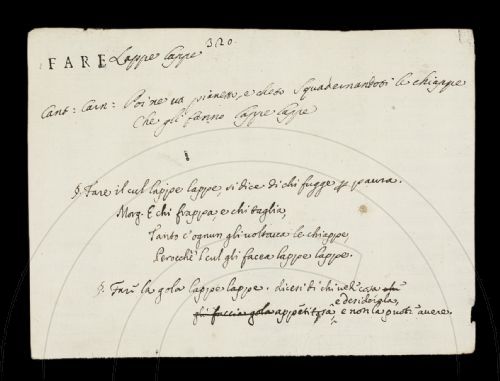 320.
FARE Lappe lappe
Cant: Carn: Poi ne va pianetto, e cheto Squadernandoti le chiappe
Che gli fanno lappe lappe
§. Fare il cul lappe lappe, si dice di chi fugge p paura.
Morg. E chi frappa e chi taglia,
Tanto c'ognun gli voltava le chiappe,
Perocchè 'l cul gli facea lappe lappe.
§. Fare la gola lappe lappe. dicesi di chi vede cosa
e desidera,
gli faccia gola appetitosa e non la puoti avere.